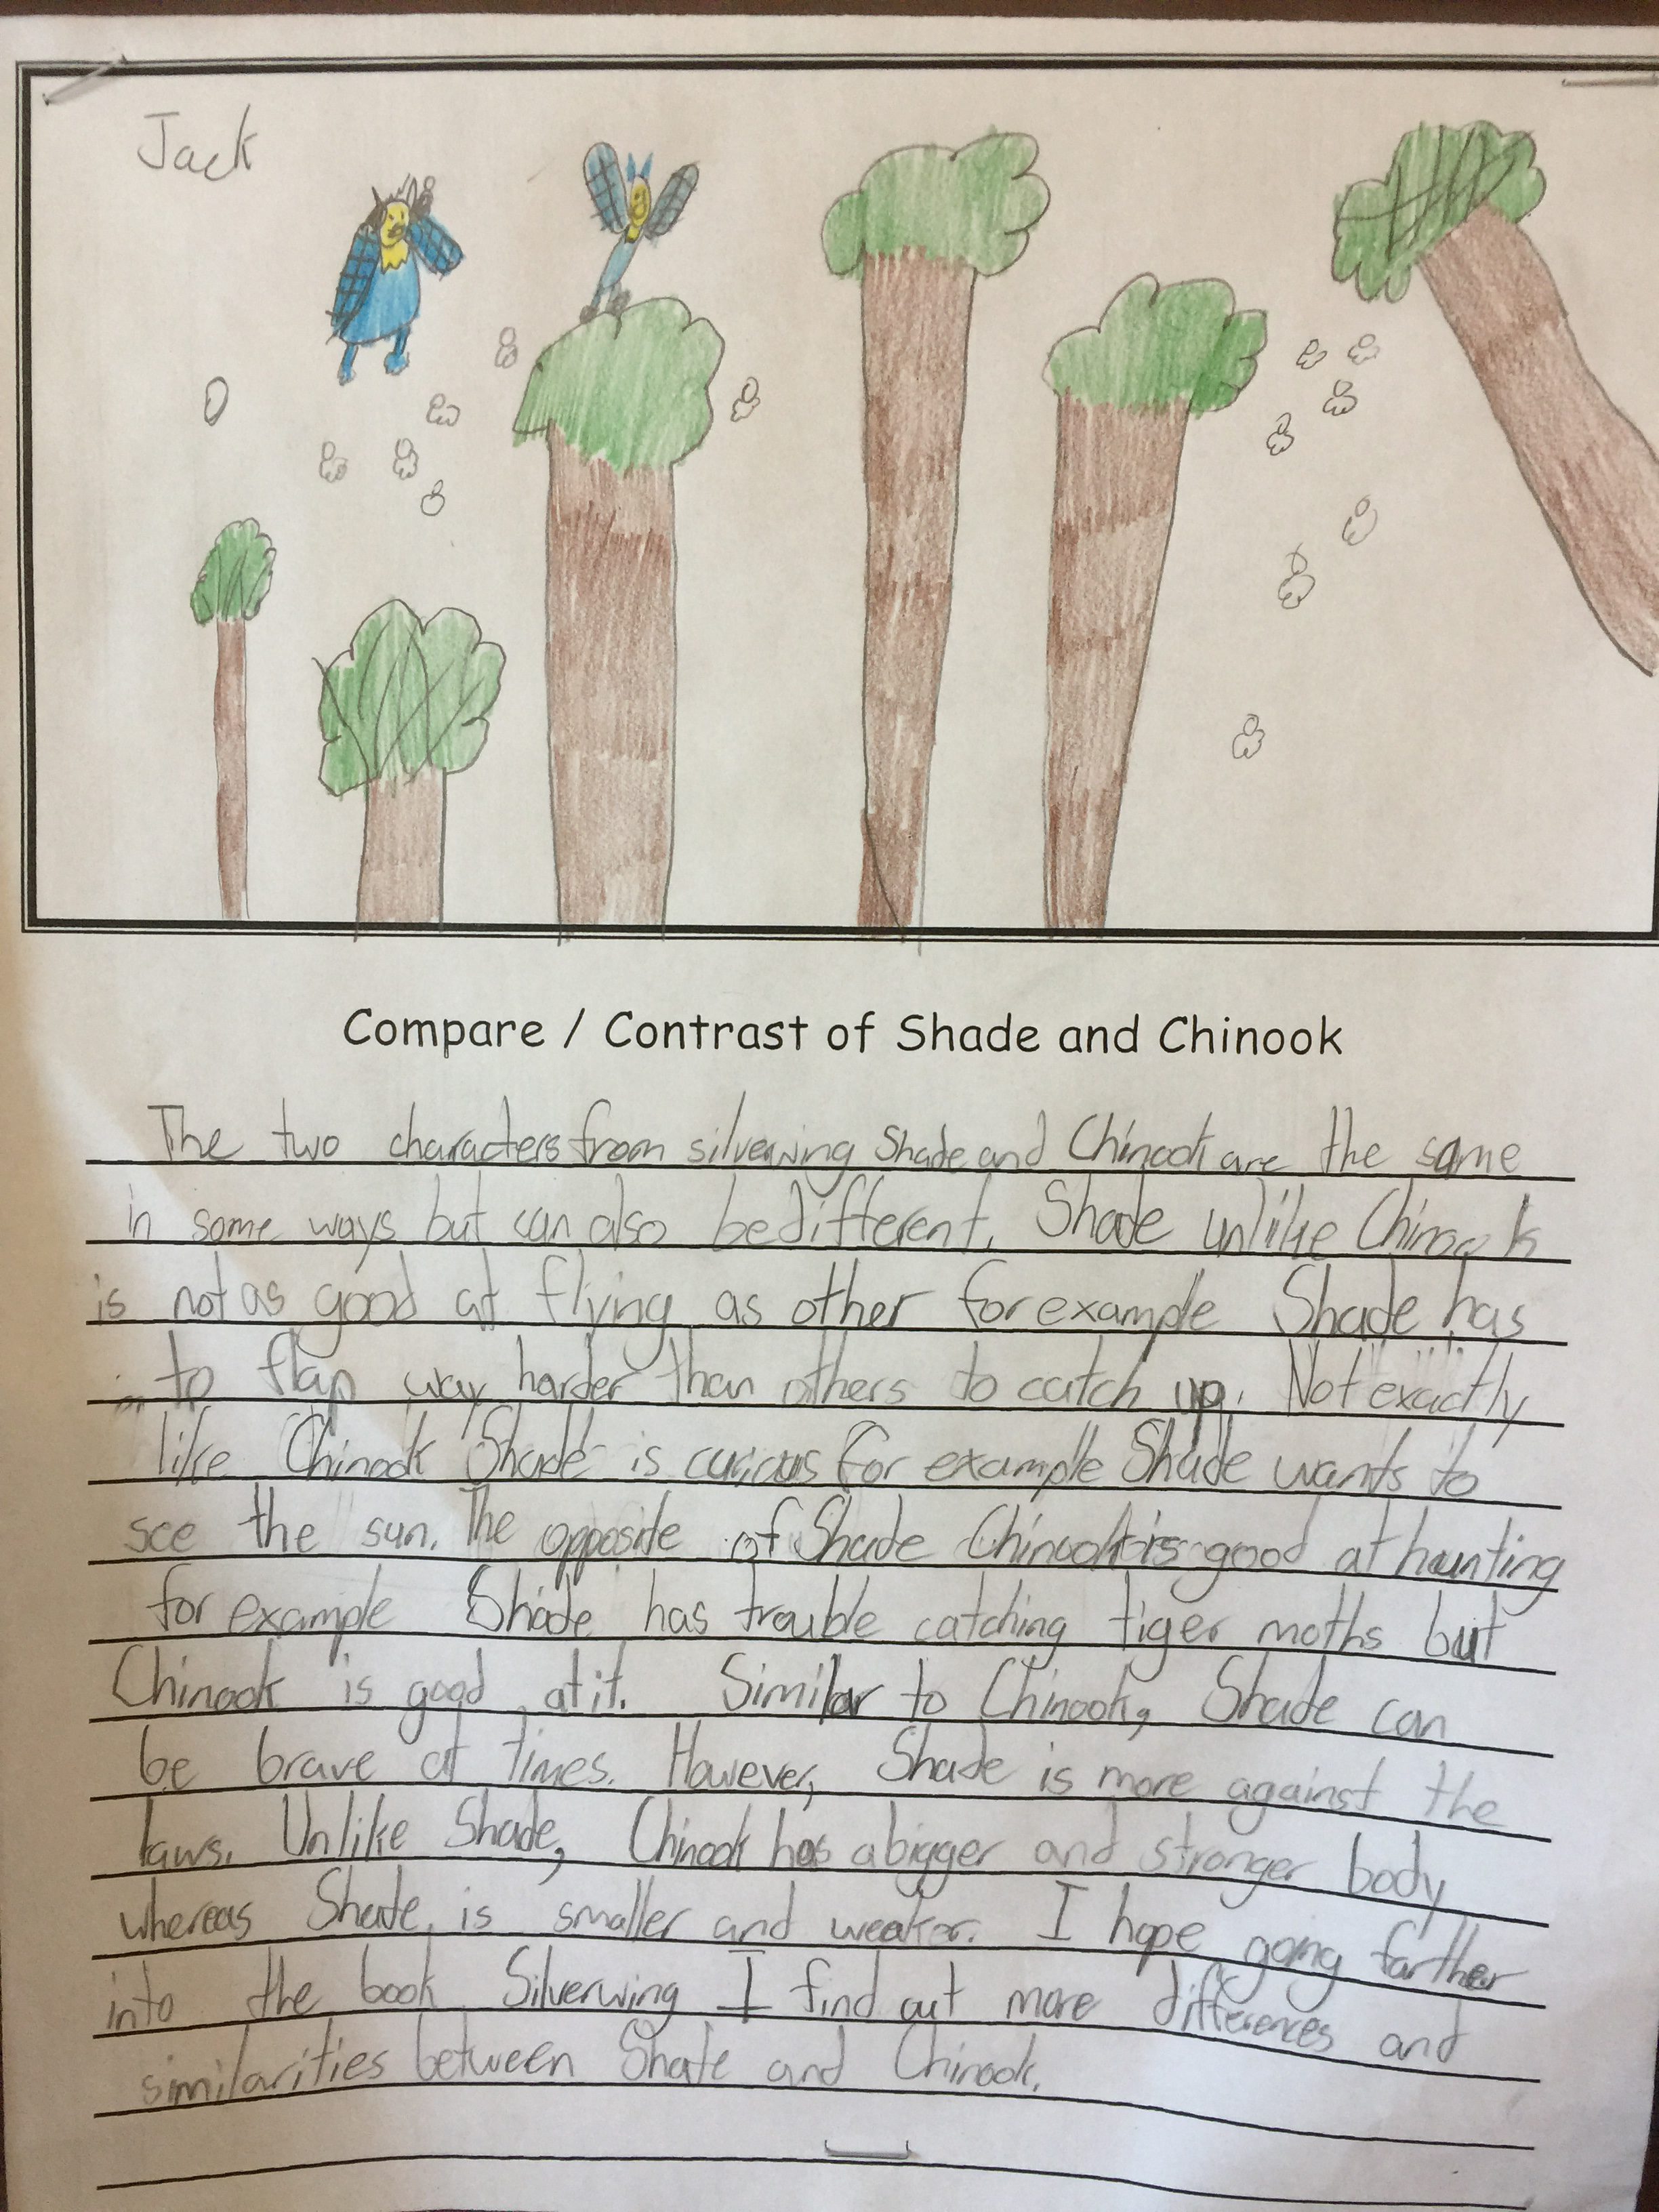 Jack
Compare / Contrast of Shade and Chinook
The two characters from silverwing Shade and Chinook are the same
in some ways but can also be different. Shade unlike Chinook
is not as good at flying as other for example Shade has
to flap way harder than others to catch up. Not exactly
like Chinook Shade is curious for example Shade wants to
see the sun. The opposite of Shade Chinook is good at haunting
for example Shade has trouble catching tiger moths but
Chinook is good at it. Similar to Chinook, Shade can
be brave at times. However, Shade is more against the
laws. Unlike Shade, Chinook has a bigger and stronger body
whereas Shade is smaller and weaker. I hope going farther
into the book Silverwing I find out more differences and
similarities between Shade and Chinook.